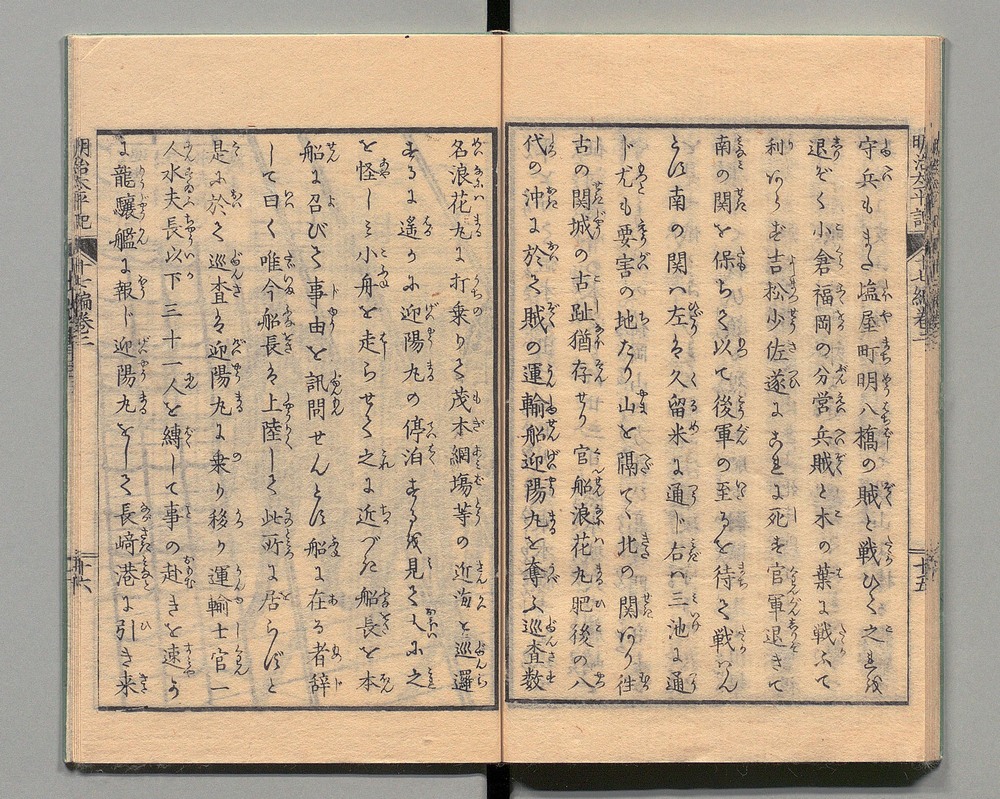 明治太平記 十七編巻二 十五
守兵もまた塩屋町明八橋の賊と戦ひて之を
退ぞく小倉福岡の分営兵賊と木の葉に戦ふて
利あらず吉松少佐遂にこれに死を官軍退きて
南の関を保ちて以て後軍の至るを待て戦はん
とす南の関ハ左は久留米に通じ右ハ三池に通
ト尤も要害の地たり山を隔てゝ北の関あり往
古の関城の古趾猶存せり官船浪花丸肥後の八
代の沖に於て賊の運輸船迎陽丸を奪ふ巡査数
名浪花丸に打乗りて茂木網場等の近海を巡邏
するに遙かに迎陽丸の停泊するを見て大に之
を怪しミ小舟を走らせて之に近づき船長を本
船に召びて事由を訊問せんとす船に在る者辞
して曰く唯今船長は上陸して此所に居らずと
是に於て巡査は迎陽丸に乗り移り運輸士官一
人水夫長以下三十一人を縛して事の赴きを速か
に龍驤艦に報じ迎陽丸をして長崎港に引き来
明治太平記 十七編巻二 十六